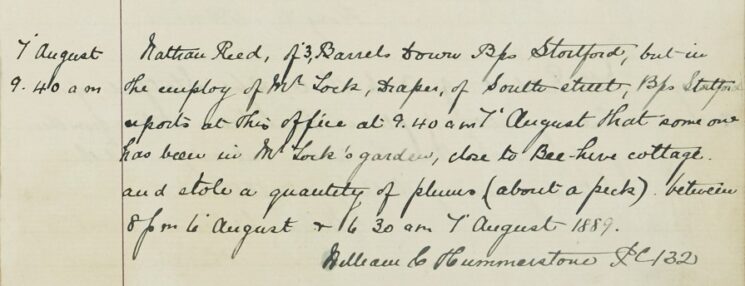 7' August Nathan Reed, of 3, Barrels Down Bps Stortford, but in
9.40 am the employ of Mr Lock, Draper, of South street, Bps Stortford
reports at this office at 9.40 am 7' August that some one
has been in Mr Lock's garden, close to Bee-hive cottage.
and stole a quantity of plums (about a peck) between
8 pm 6' August & 6 30 am 7' August 1889.
William C Hummerstone PC 132